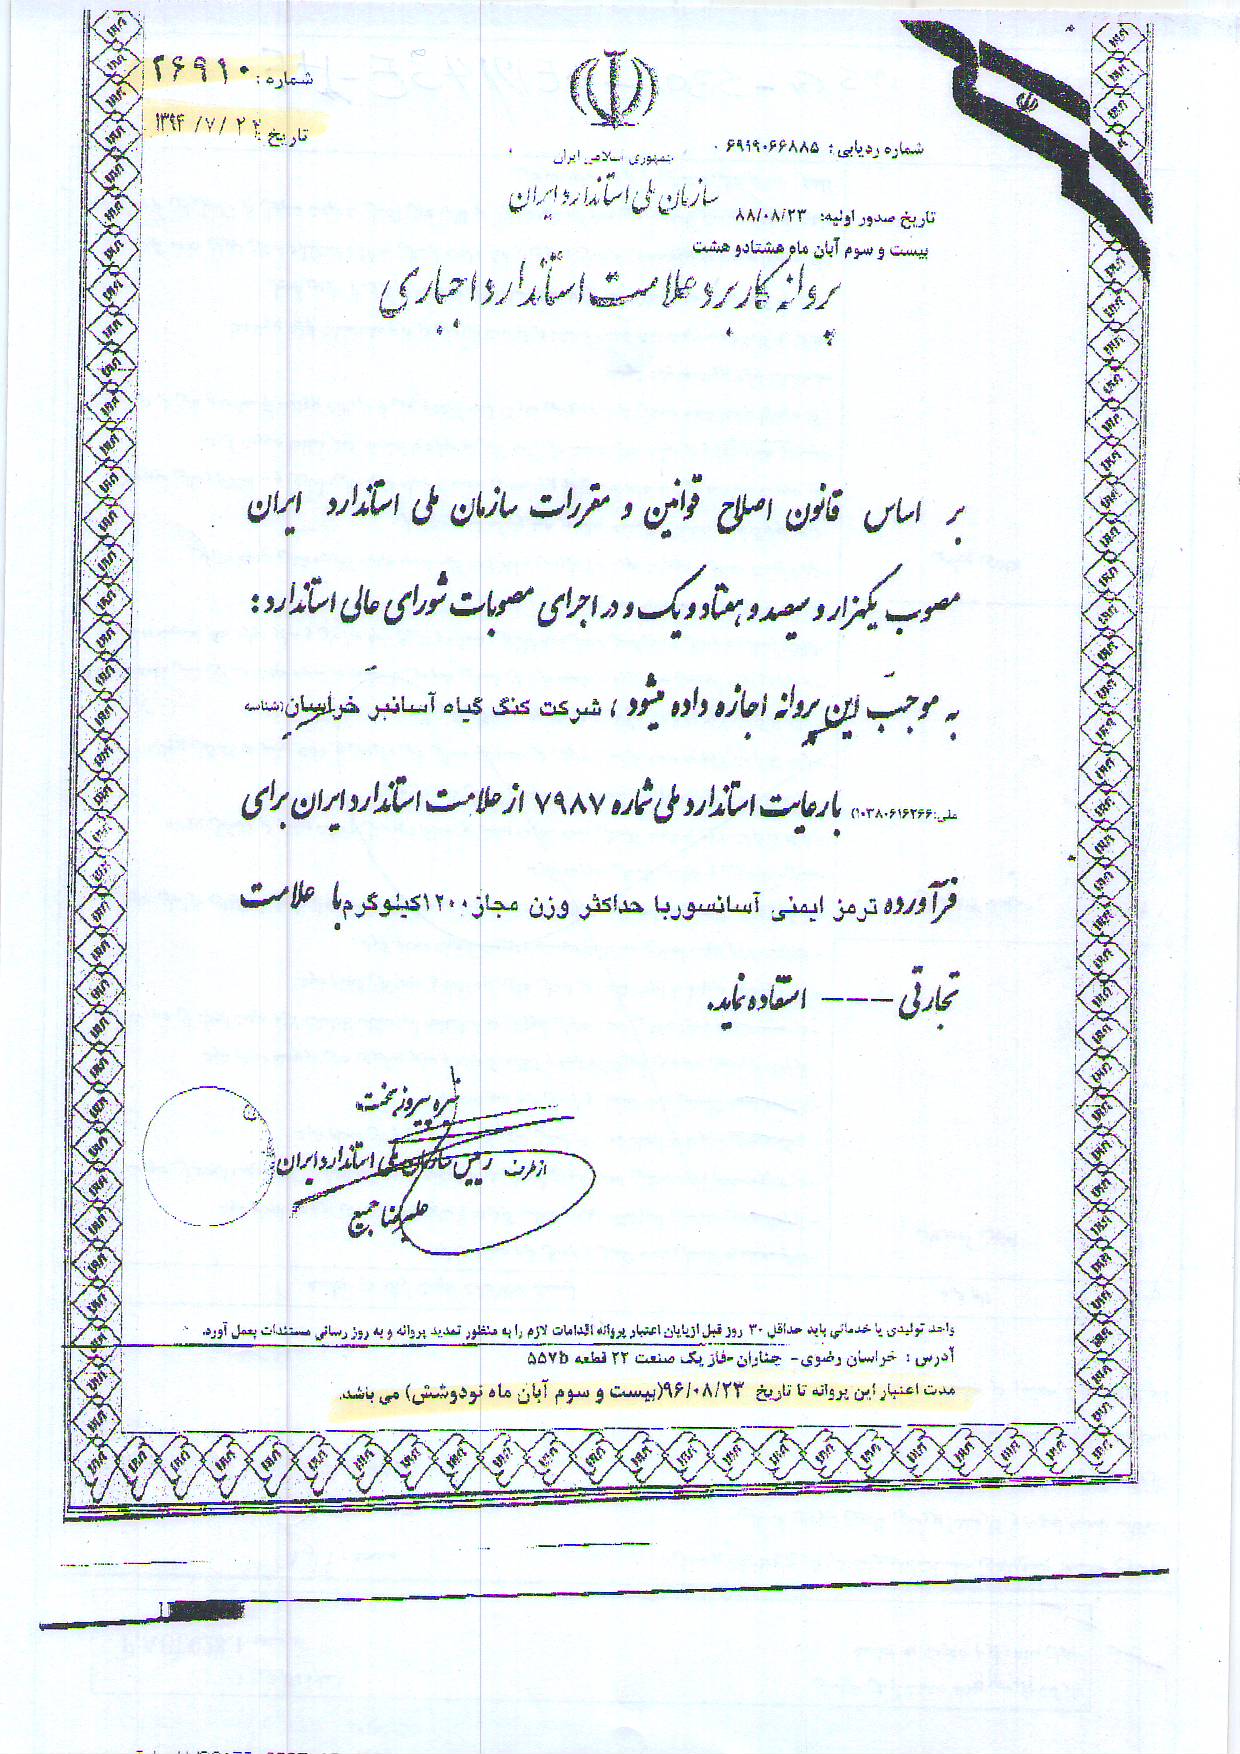 شماره: ۲۶۹۱۰
تاریخ: ۱۳۹۴/۷/۲۲
جمهوری اسلامی ایران
سازمان ملی استاندارد ایران
شماره ردیابی: ۶۹۹۹۰۶۶۸۸۵
تاریخ صدور اولیه: ۸۸/۰۸/۲۳
بیست و سوم آبان ماه هشتادو هشت
پروانه کاربرد علامت استاندارد اجباری
بر اساس قانون اصلاح قوانین و مقررات سازمان ملی استاندارد ایران
مصوب یکهزار و سیصد و هفتاد و یک و در اجرای مصوبات شورای عالی استاندارد:
به موجب این پروانه اجازه داده میشود ، شرکت کنگ گیاه آسانبر خراسان(شناسه
ملی:۱۰۳۸۰۶۱۶۲۶۶) با رعایت استاندارد ملی شماره ۷۹۸۷ از علامت استاندارد ایران برای
فرآورده ترمز ایمنی آسانسوربا حداکثر وزن مجاز۱۲۰۰کیلوگرم با علامت
تجارتی ---- استفاده نماید.
نیره پیروزبخت
از طرف رییس سازمان ملی استاندارد ایران
علیرضا جمیع
واحد تولیدی یا خدماتی باید حداقل ۳۰ روز قبل ازپایان اعتبار پروانه اقدامات لازم را به منظور تمدید پروانه و به روز رسانی مستندات بعمل آورد.
آدرس : خراسان رضوی- چناران-فاز یک صنعت ۲۲ قطعه ۵۵۷b
مدت اعتبار این پروانه تا تاریخ ۹۶/۰۸/۲۳(بیست و سوم آبان ماه نودوشش) می باشد.